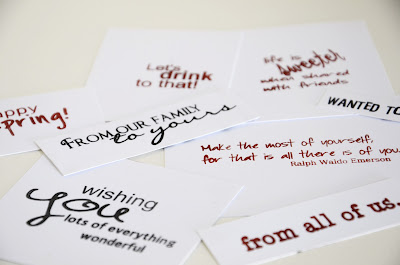 Let's
drink
to that!
life is
sweeter
when shared
with friends
appy
pring!
FROM OUR FAMILY
to yours
WANTED TO
Make the most of yourself,
for that is all there is of you.
Ralph Waldo Emerson
wishing
you
lots of everything
wonderful
from all of us.